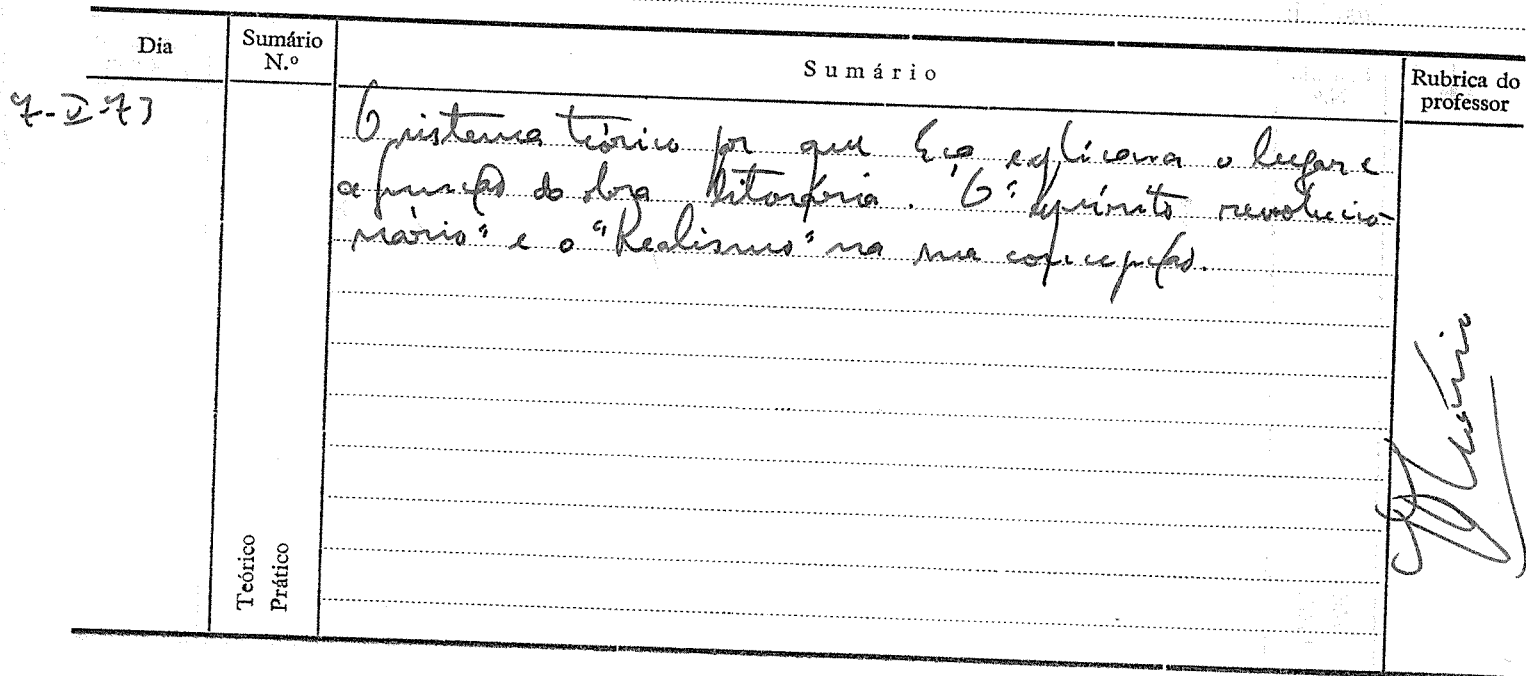 Dia
Sumário N.º
Sumário
Rubrica do professor
7-V-73
O sistema teórico por que Eça explicava o lugar e
a função da obra literária. O "espírito revolucio-
nário" e o "Realismo" na sua concepção.
Teórico
Prático